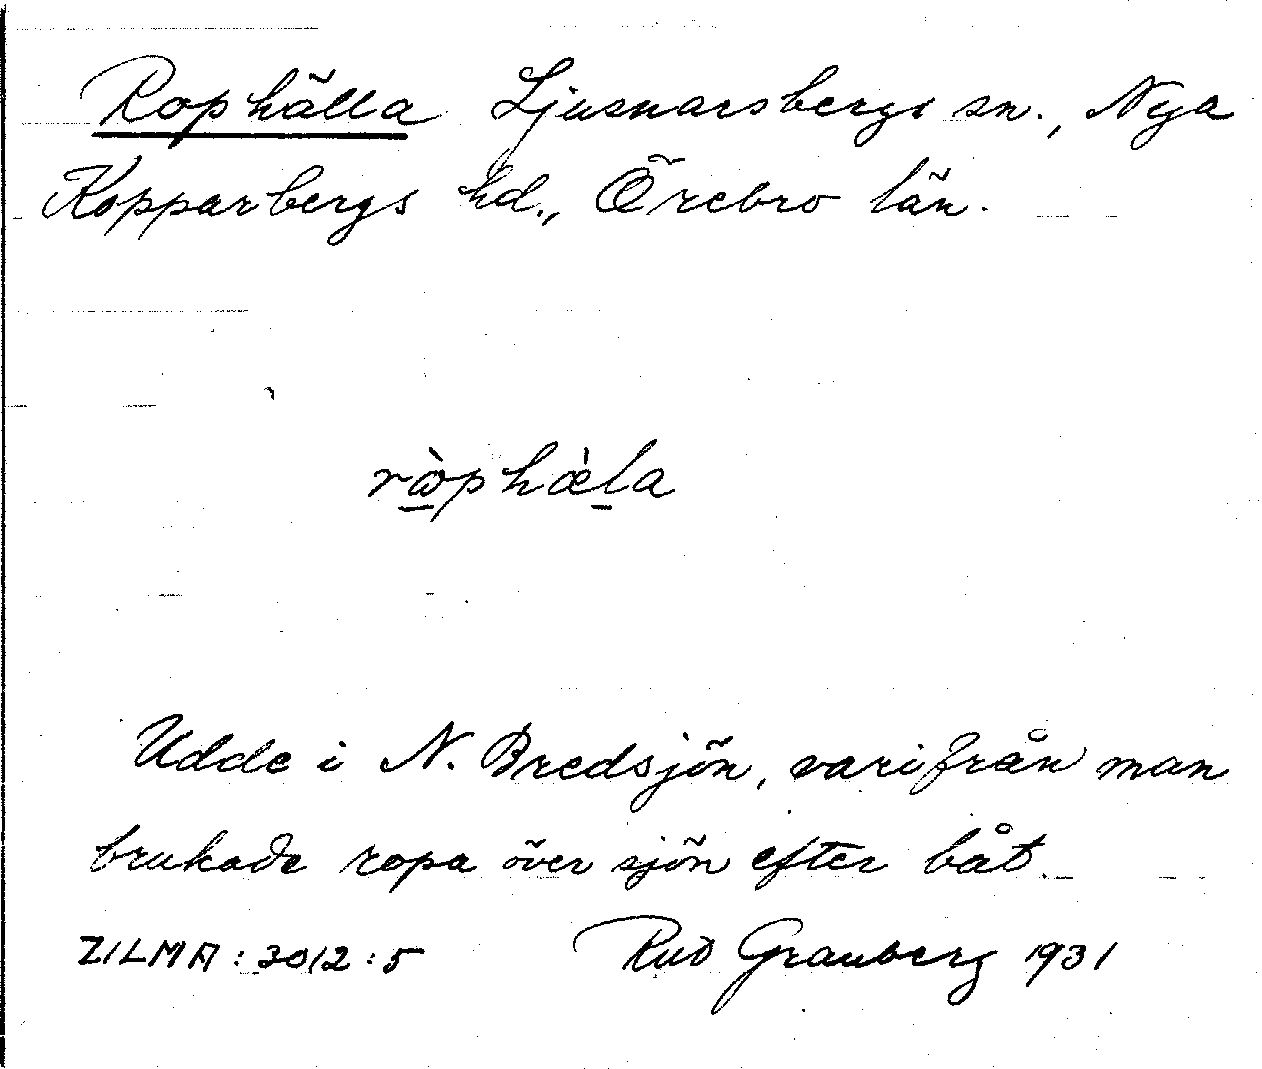 Rophälla Ljusnarsbergs sn., Nya
Kopparbergs hd., Örebro län.
ròphæ̀la
Udde i N. Bredsjön, varifrån man
brukade ropa över sjön efter båt.
ZILMA : 3012 : 5 Rud Granberg 1931